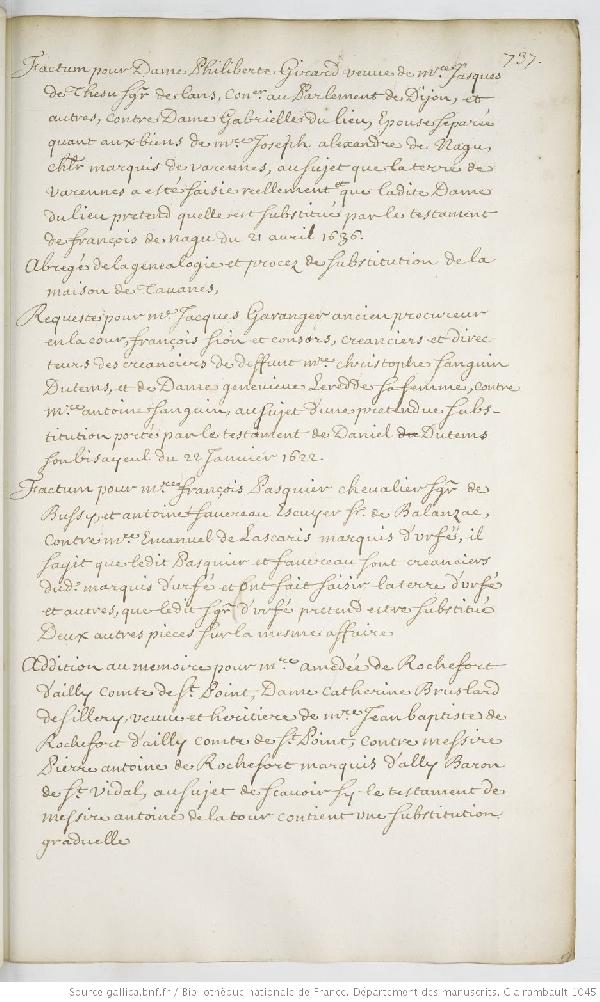 737.
Factum pour Dame Philiberte Girard veuve de mre Jasques
de Thesu sgr de lans, Coner au Parlement de Dijon, et
autres, contre Dame Gabrielle du lieu, Epouse separée
quant aux biens de mre Joseph alexandre de Nagu,
chlr marquis de varennes, au sujet que la terre de
varennes a esté saisie reellement et que ladite Dame
du lieu pretend quelle est substitué par le testament
de françois de nagu du 21 avril 1636.
Abregé de la genealogie et procez de substitution de la
maison de Tavanes,
Requeste pour me Jacques Garanger ancien procureur
en la cour, françois sion et consors, creanciers et direc-
teurs des creanciers de deffunt mre christophe sanguin
Dutems, et de Dame genevieve Leredde sa femme, contre
mre antoine sanguin, au sujet d'une pretendue subs-
titution porté par le testament de Daniel Dutems
son bisayeul du 22 Janvier 1622.
Factum pour mre françois Pasquier chevalier sgr de
Bussy, et antoine favereau Escuyer sr. de Balanzac,
contre mre Emanuel de Lascaris marquis d'vrfé, il
sagit que ledit Pasquier et favereau sont creanciers
dud. marquis d'urfé et ont fait saisir la terre d'vrfé
et autres, que ledit sgr d'vrfé pretend estre substitué
Deux autres pieces sur la mesme affaire
Addition au memoire pour mre amedée de Rochefort
d'ailly comte de St. Point, Dame Catherine Bruslard
de sillery, veuve et heritiere de mre Jean baptiste de
Rochefort d'ailly comte de St. Point, contre messire
Pierre antoine de Rochefort marquis d'ally Baron
de St. vidal, au sujet de scavoir sy le testament de
messire antoine de la tour contient vne substitution
graduelle
Source gallica.bnf.fr / Bibliothèque nationale de France. Département des manuscrits. Clairambault 1045